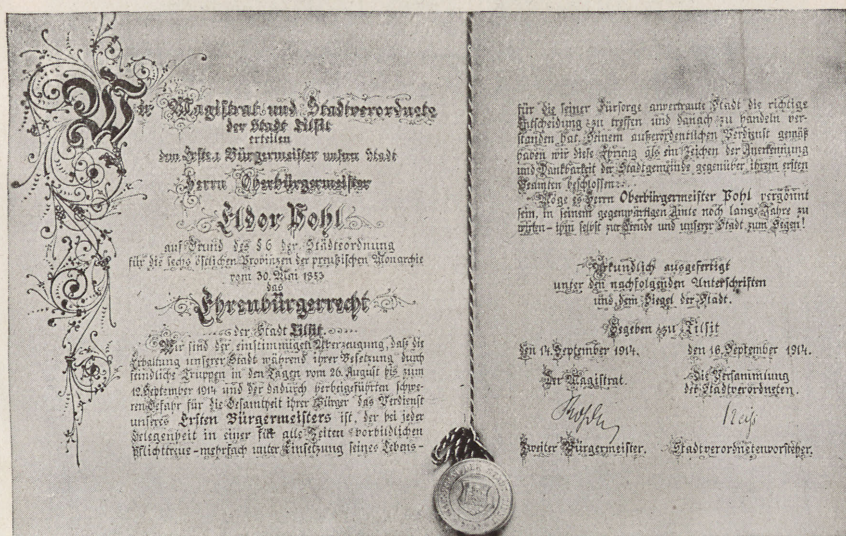 Wir Magistrat und Stadtverordnete
der Stadt Tilsit
erteilen
dem Ersten Bürgermeister unsrer Stadt
Herrn Oberbürgermeister
Eldor Pohl
auf Grund des §6 der Städteordnung
für die sechs östlichen Provinzen der preußischen Monarchie
vom 30. Mai 1853
das
Ehrenbürgerrecht
der Stadt Tilsit.
Wir sind der einstimmigen Überzeugung, daß die
Erhaltung unserer Stadt während ihrer Besetzung durch
feindliche Truppen in den Tagen vom 26. August bis zum
12. September 1914 und der dadurch herbeigeführten schwe-
ren Gefahr für die Gesamtheit ihrer Bürger das Verdienst
unseres Ersten Bürgermeisters ist, der bei jeder
Gelegenheit in einer für alle Zeiten vorbildlichen
Pflichttreue - mehrfach unter Einsetzung seines Lebens -
für die seiner Fürsorge anvertraute Stadt die richtige
Entscheidung zu treffen und danach zu handeln ver-
standen hat. Seinem außerordentlichen Verdienst gemäß
haben wir diese Ehrung als ein Zeichen der Anerkennung
und Dankbarkeit der Stadtgemeinde gegenüber ihrem ersten
Beamten beschlossen.
Möge es Herrn Oberbürgermeister Pohl vergönnt
sein, in seinem gegenwärtigen Amte noch lange Jahre zu
wirken - ihm selbst zur Freude und unserer Stadt zum Segen!
Urkundlich ausgefertigt
unter den nachfolgenden Unterschriften
und dem Siegel der Stadt.
Gegeben zu Tilsit
den 14. September 1914. den 16. September 1914.
Der Magistrat. Die Versammlung
der Stadtverordneten.
Zweiter Bürgermeister. Stadtverordnetenvorsteher.